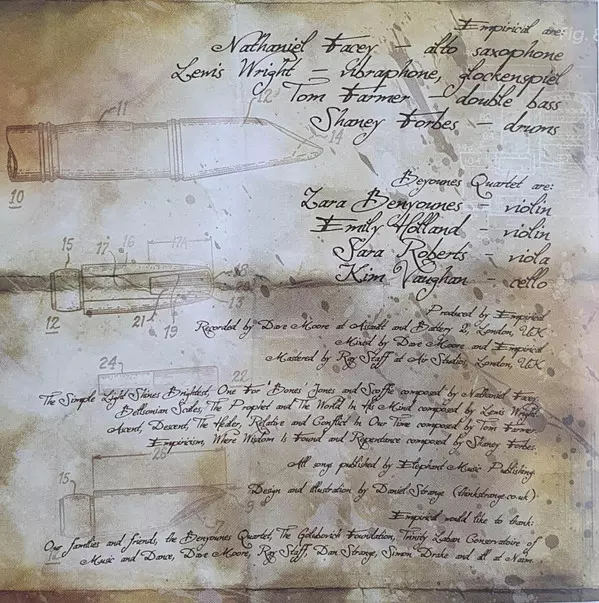 Empirical are:
Fig. 8
Nathaniel Facey – alto saxophone
Lewis Wright – vibraphone, glockenspiel
Tom Farmer – double bass
Shaney Forbes – drums
11
12
14
10
Beyounes Quartet are:
Zara Benyounes – violin
Emily Holland – violin
Sara Roberts – viola
Kim Vaughan – cello
15
17
16
17A
18
20
13
12
21
19
Produced by Empirical
Recorded by Dave Moore at Assault and Battery 2, London, UK
Mixed by Dave Moore and Empirical
Mastered by Ray Staff at Air Studios, London, UK
24
22
The Simple Light Shines Brightest, One For Bones Jones and Scoffie composed by Nathaniel Facey.
Bellsonian Scales, The Prophet and The World In His Mind composed by Lewis Wright.
Ascent, Descent, The Healer, Relative and Conflict In Our Time composed by Tom Farmer.
Empiricism, Where Wisdom Is Found and Repentance composed by Shaney Forbes.
26
All song published by Elephant Music Publishing.
15
Design and illustration by Daniel Strange (thinkstrange.co.uk)
Empirical would like to thank:
Our families and friends, the Benyounes Quartet, The Golubovich Foundation, Trinity Laban Conservatoire of
Music and Dance, Dave Moore, Ray Staff, Dan Strange, Simon Drake and all at Naim.